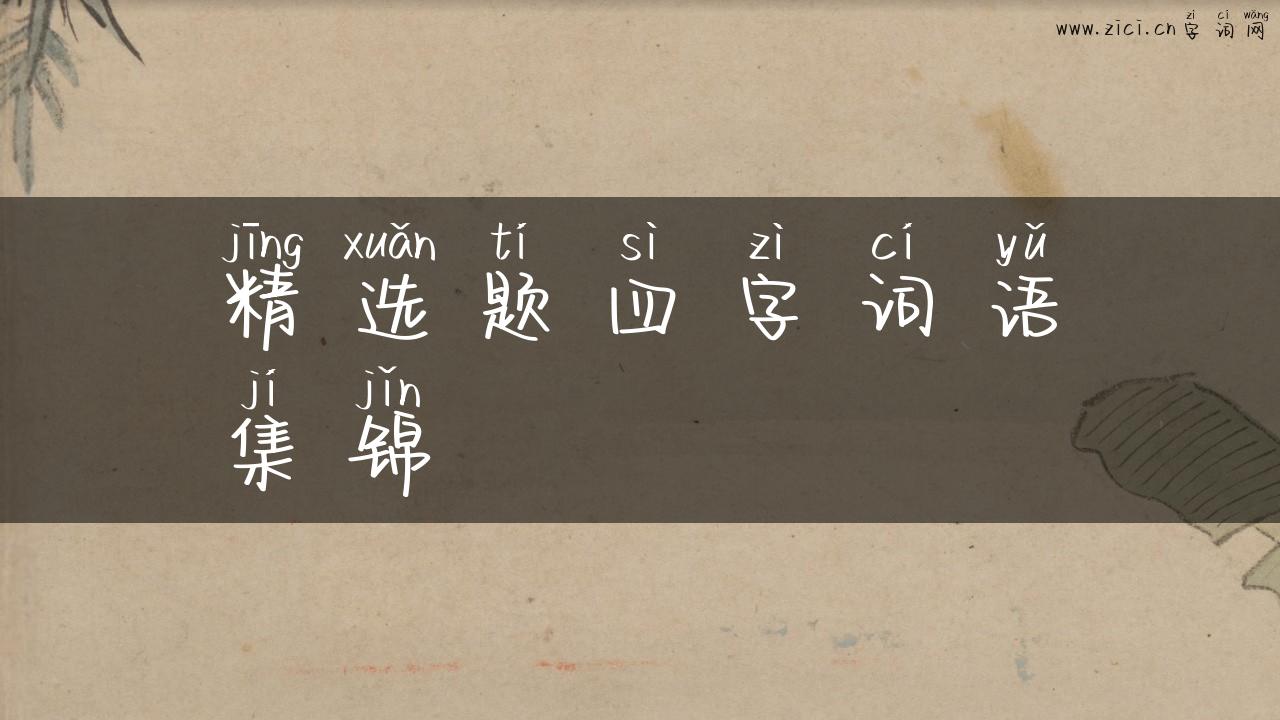 zì cí wǎng
www.zici.cn 字词网
jīng xuǎn tí sì zì cí yǔ
精选题四字词语
jí jǐn
集锦